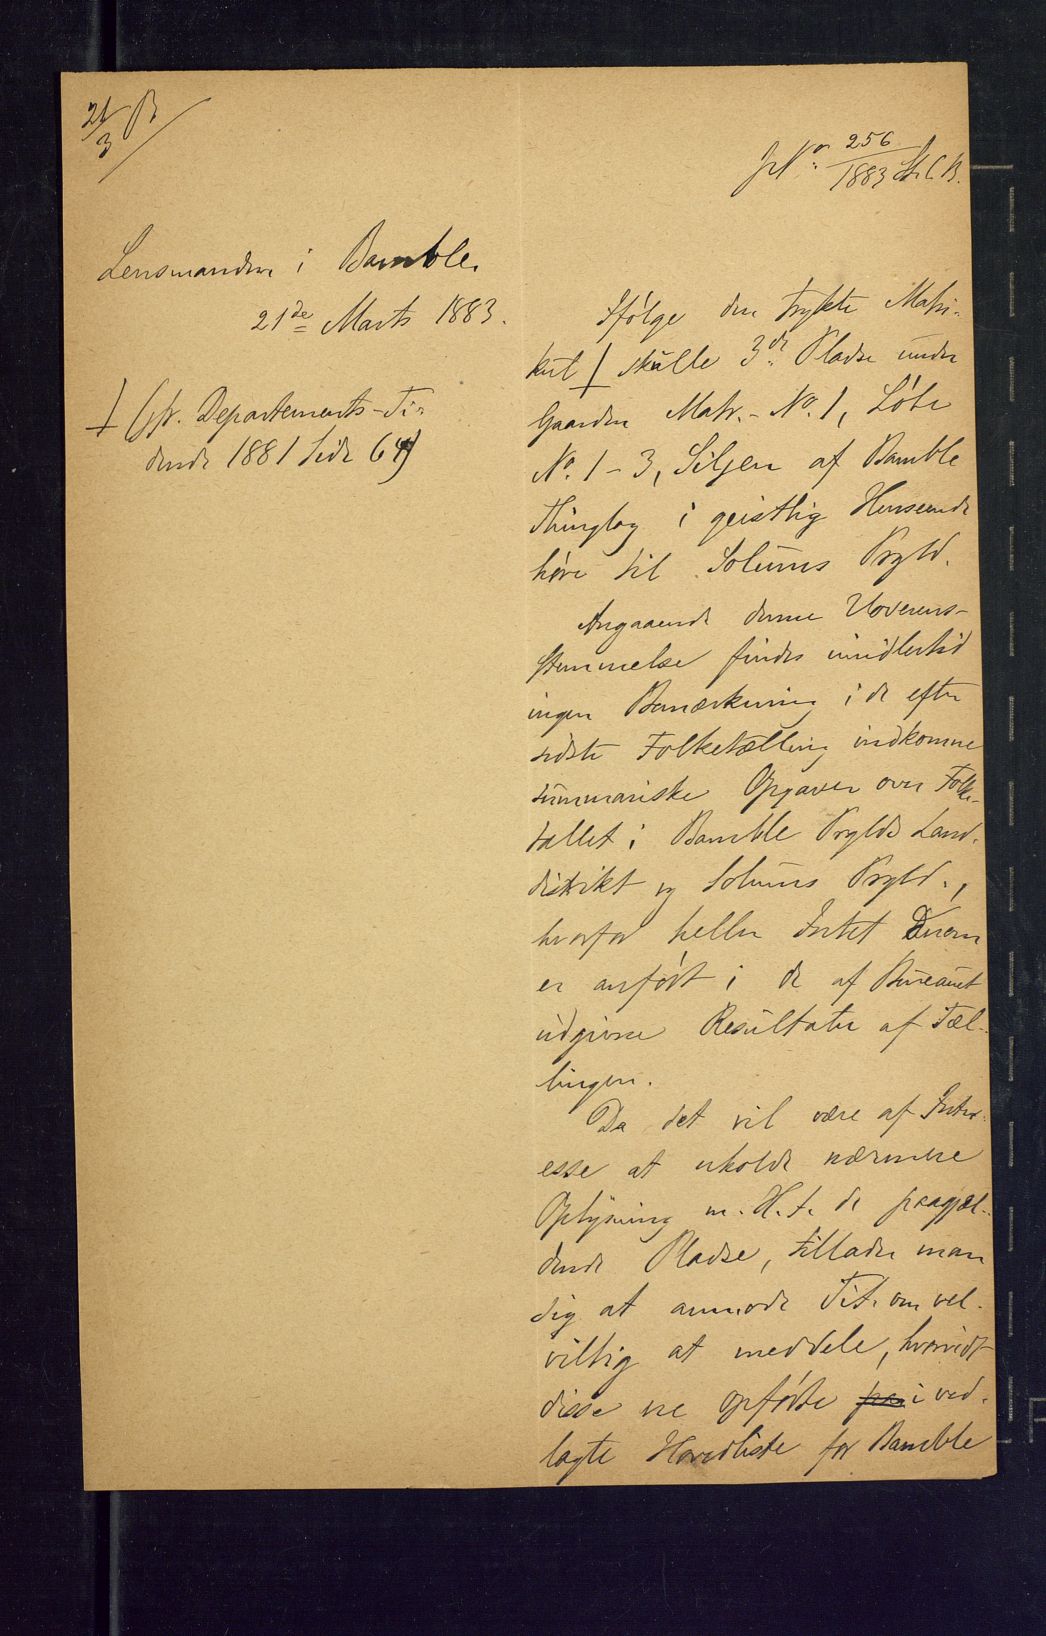 21/3 B
JNo. 256/1883 St. C. B.
Lensmanden i Bamble.
21de Marts 1883.
† (jfr. Departements-Ti-
dende 1881 Side 64)
Ifølge den trykte Matri-
kul † skulle 3de Pladse under
Gaarden Matr.-No. 1, Løbe
No. 1-3, Siljen af Bamble
Thinglag i geistlig Henseende
høre til Solums Prgld.
Angaaende denne Uoverens-
stemmelse findes imidlertid
ingen Bemærkning i de efter
sidste Folketælling indkomne
summariske Opgaver over Folke-
tallet i Bamble Prglds Land-
distrikt og Solums Prgld.,
hvorfor heller Intet derom
er anført i de af Bureauet
udgivne Resultater af Tæl-
lingen.
Da det vil være af Inter-
esse at erholde nærmere
Oplysning m. H. t. de paagjæl-
dende Pladse, tillader man
sig at anmode Tit. om vel-
villig at meddele, hvorvidt
disse ere opførte paa i ved-
lagte Hovedliste for Bamble